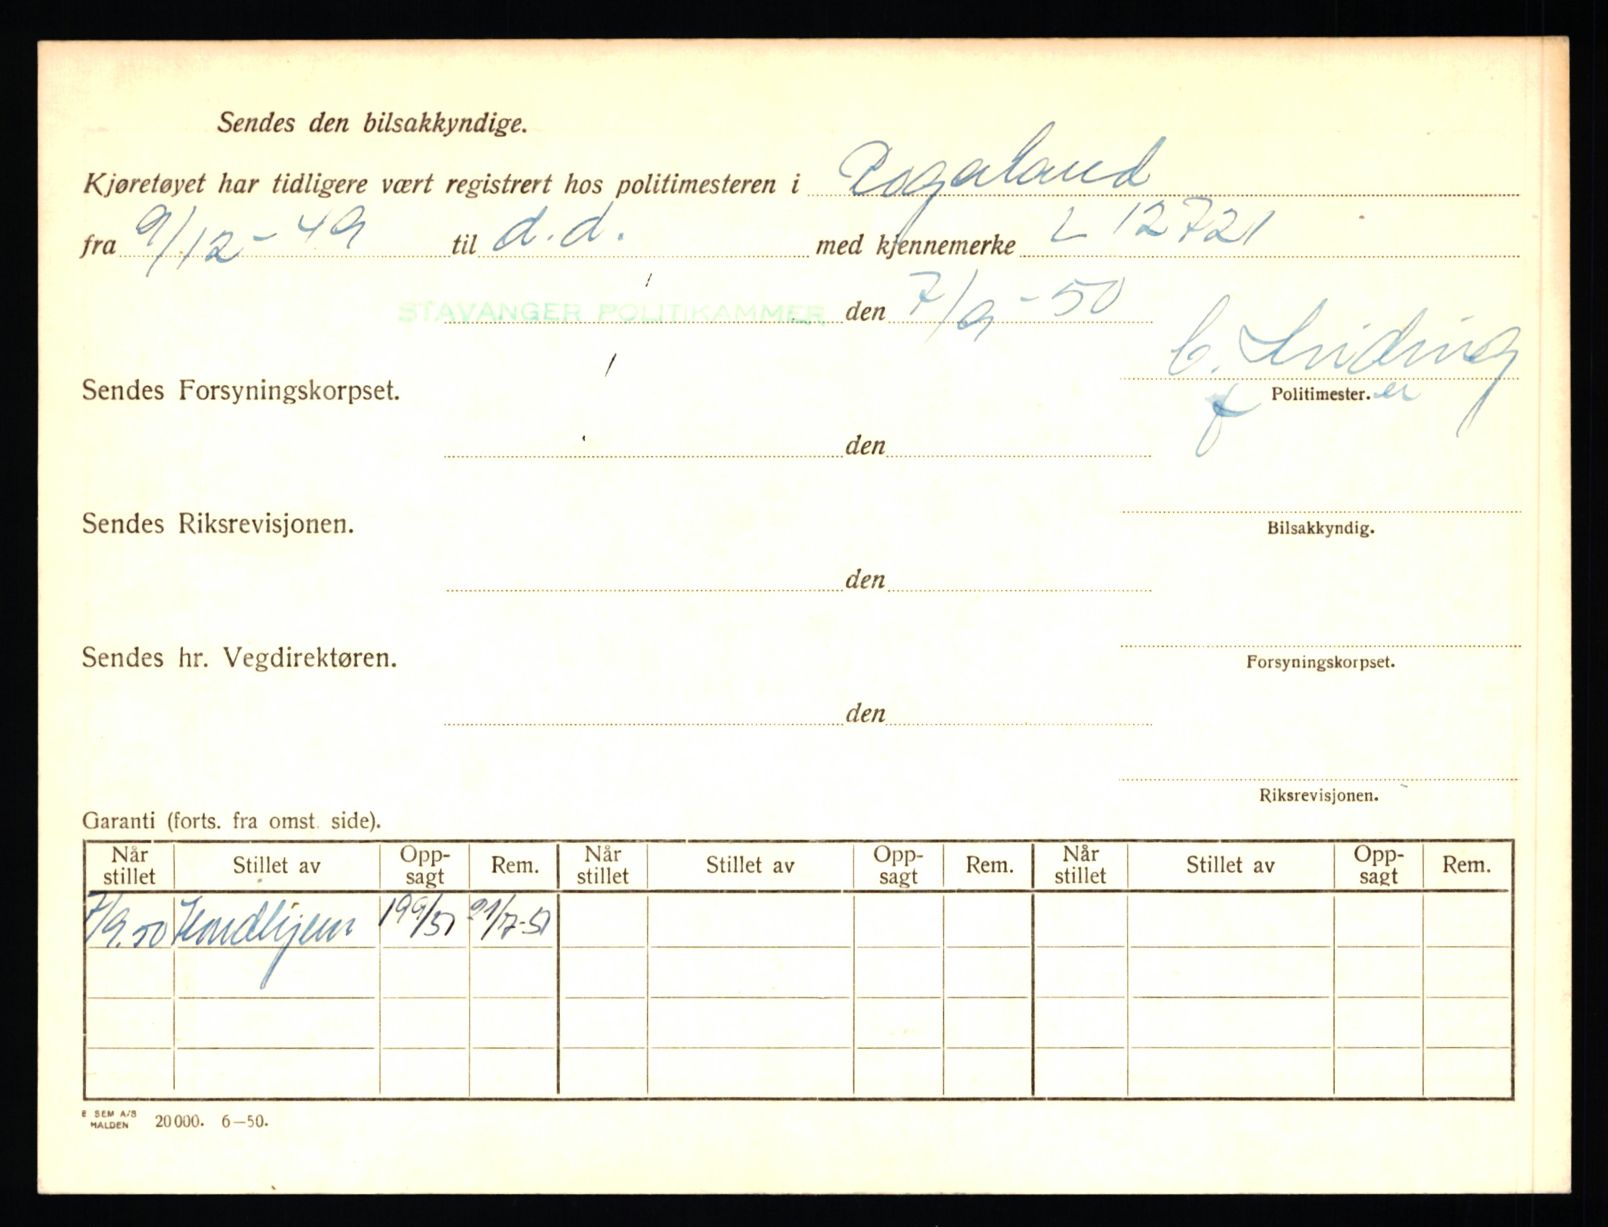 Sendes den bilsakkyndige.
Kjøretøyet har tidligere vært registrert hos politimesteren i Rogaland
fra 9/12-49 til d.d. med kjennemerke L 12721
STAVANGER POLITIKAMMER den 7/9-50
Sendes Forsyningskorpset.
f Politimester.
den
Sendes Riksrevisjonen.
Bilsakkyndig.
den
Sendes hr. Vegdirektøren.
Forsyningskorpset.
den
Riksrevisjonen.
Garanti (forts. fra omst. side).
Når stillet Stillet av Opp-sagt Rem. Når stillet Stillet av Opp-sagt Rem. Når stillet Stillet av Opp-sagt Rem.
7/9.50 21/7-51
E SEM A/S
HALDEN 20000. 6—50.